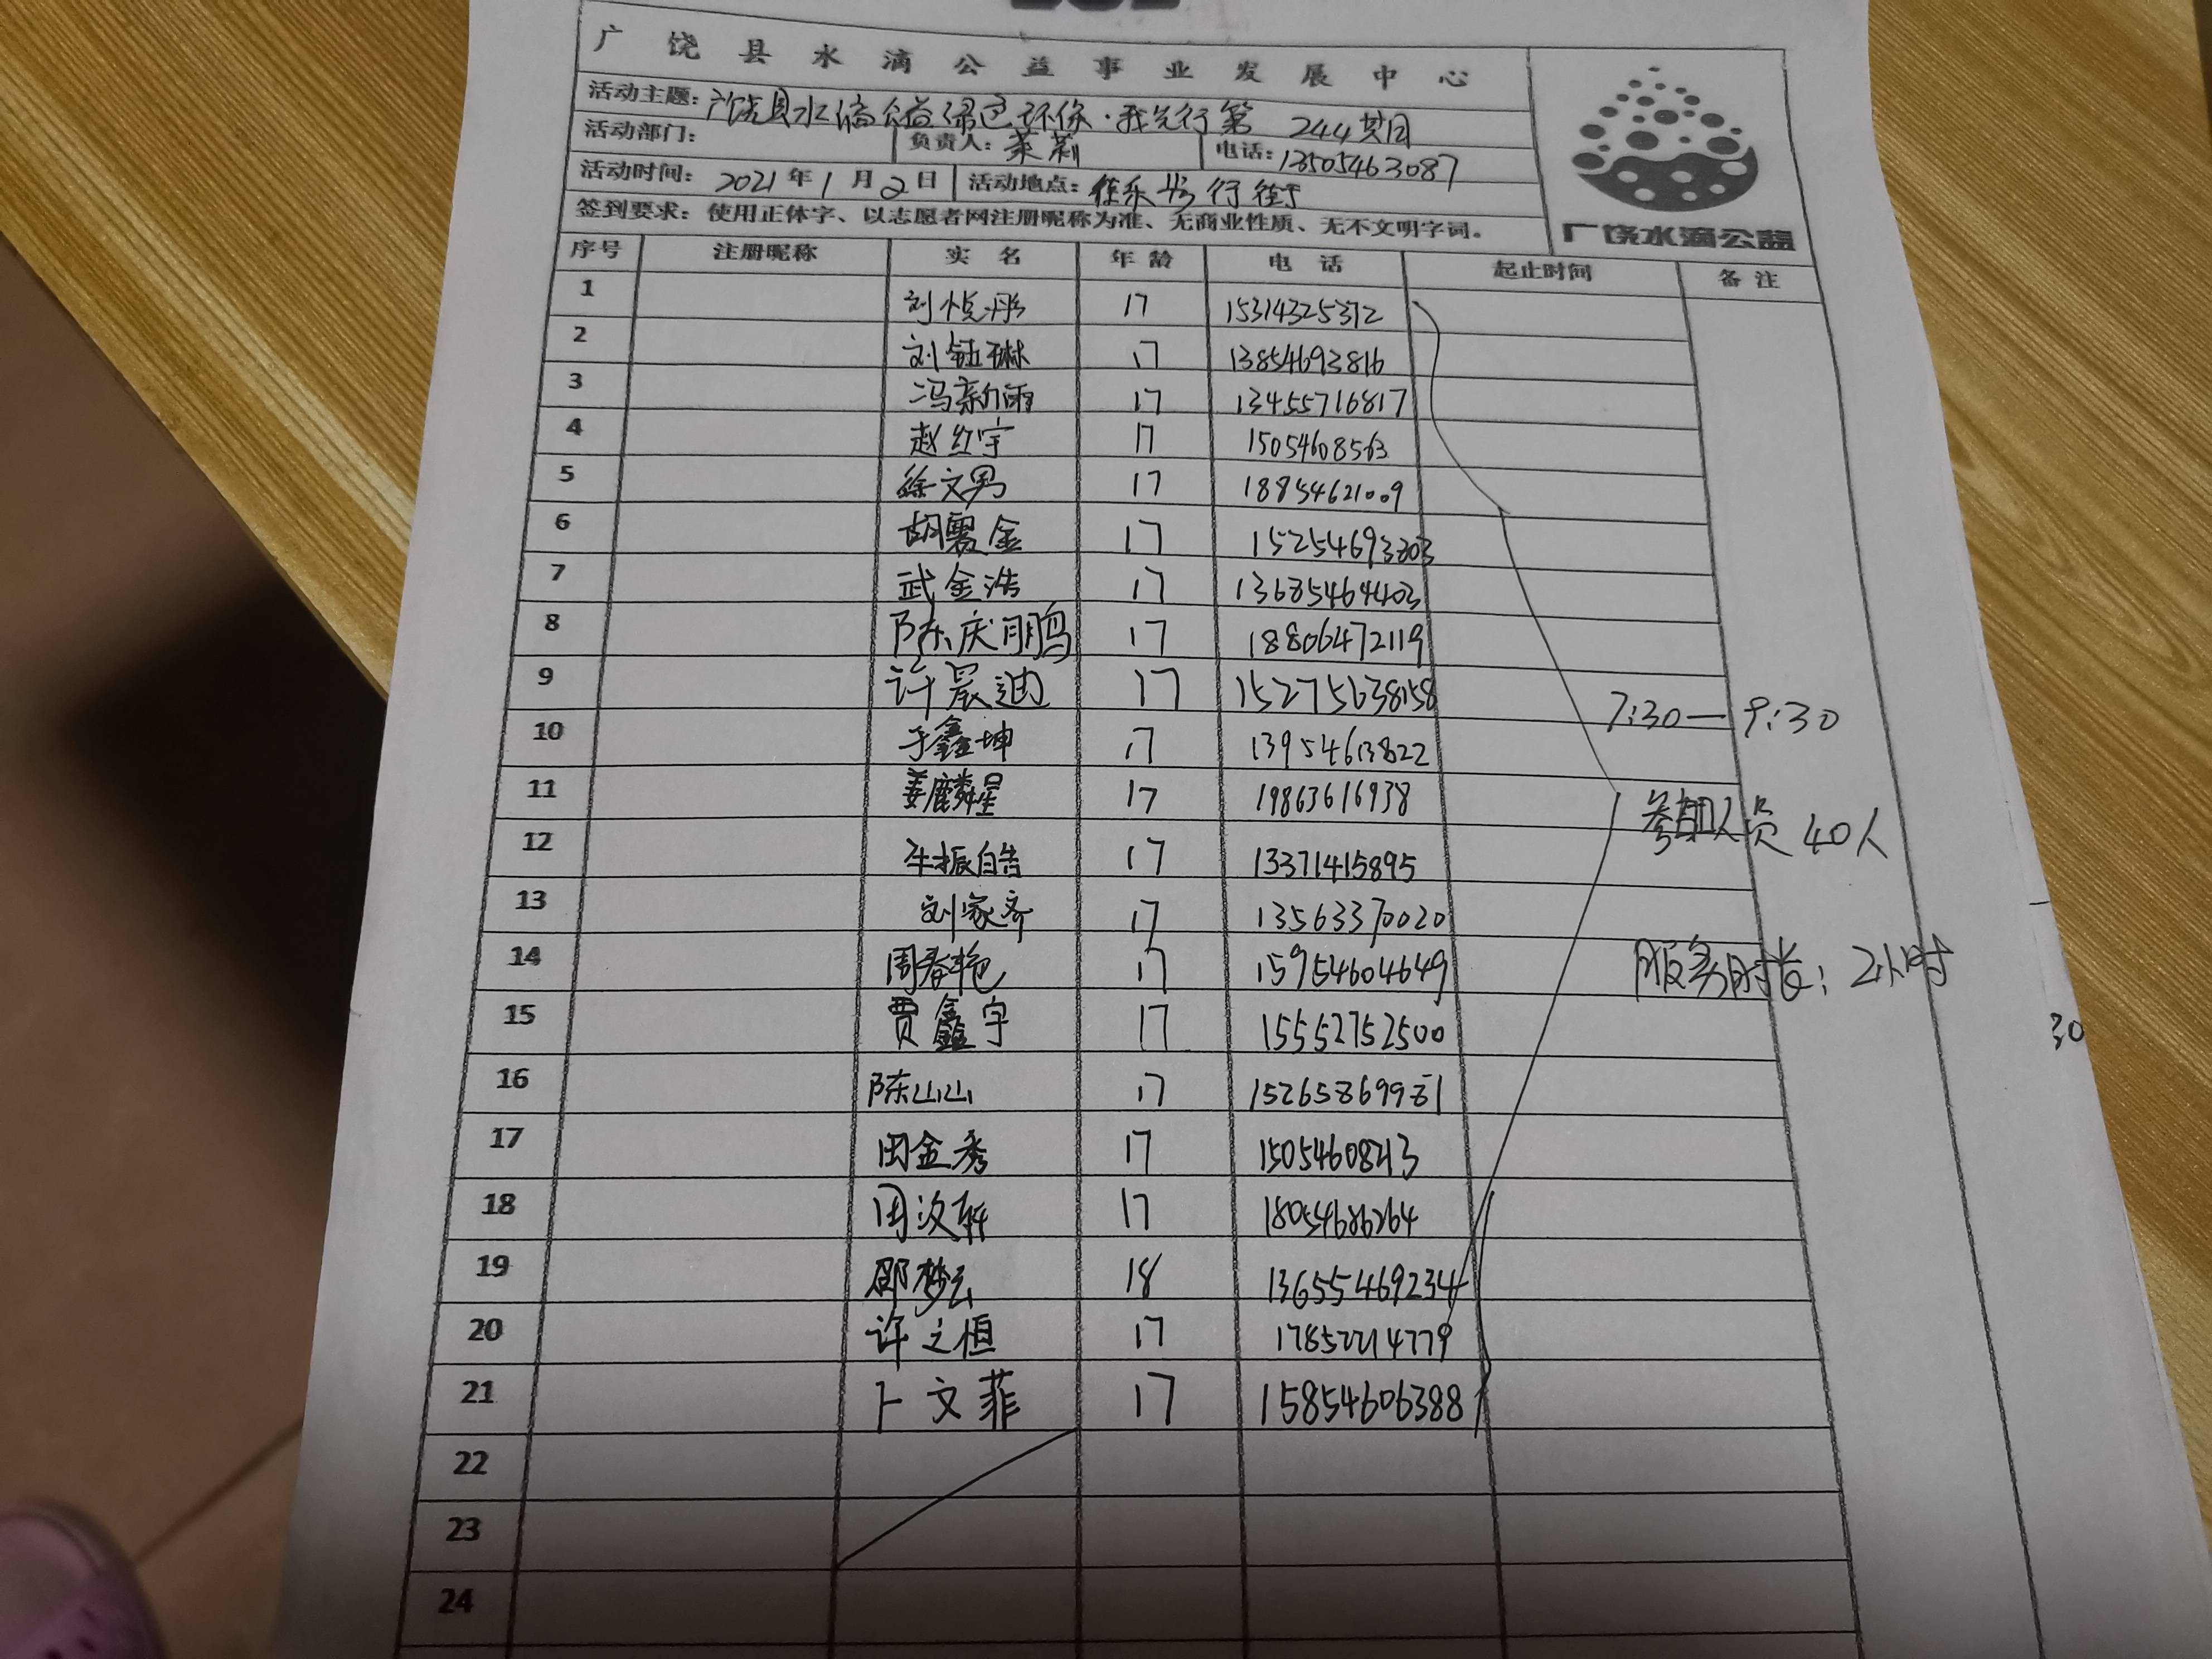 广饶县水滴公益事业发展中心
活动主题：广饶县水滴公益绿色环保·我先行第 244期
活动部门： 负责人：茉莉 电话：13505463087
活动时间：2021年1月2日 活动地点： 步行街
签到要求：使用正体字、以志愿者网注册昵称为准、无商业性质、无不文明字词。
广饶水滴公益
序号 注册昵称 实名 年龄 电话 起止时间 备注
1 刘悦彤 17 15314325372
2 刘钰琳 17 13854693816
3 冯新雨 17 13455716817
4 赵红宇 17 15054608563
5 徐文男 17 18854621009
6 胡震金 17 15254693303
7 武金浩 17 13685464403
8 陈庆鹏 17 18806472119
9 许晨迪 17 15275638158
7:30—9:30
10 于鑫坤 17 13954613822
11 姜麟星 17 19863616938
参加人员 40人
12 牛振皓 17 13371415895
13 刘家齐 17 13563370020
14 周春艳 17 15954604649
服务时长：2小时
15 贾鑫宇 17 15552752500
30
16 陈山山 17 15265869981
17 田金秀 17 15054608213
18 田汝轩 17 18054686264
19 邵梦云 18 13655469234
20 许之恒 17 17852214779
21 卜文菲 17 15854606388
22
23
24